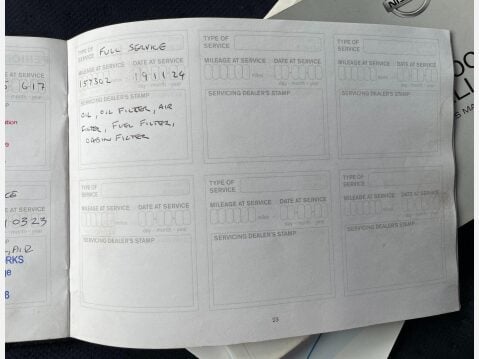 TYPE OF
SERVICE FULL SERVICE
MILEAGE AT SERVICE DATE AT SERVICE
157302 miles 19 11 24
day - month - year
SERVICING DEALER'S STAMP
OIL, OIL FILTER, AIR
FILTER, FUEL FILTER,
CABIN FILTER
TYPE OF
SERVICE
MILEAGE AT SERVICE DATE AT SERVICE
miles
day - month - year
SERVICING DEALER'S STAMP
TYPE OF
SERVICE
MILEAGE AT SERVICE DATE AT SERVICE
miles
day - month - year
SERVICING DEALER'S STAMP
TYPE OF
SERVICE
MILEAGE AT SERVICE DATE AT SERVICE
miles
day - month - year
SERVICING DEALER'S STAMP
TYPE OF
SERVICE
MILEAGE AT SERVICE DATE AT SERVICE
miles
day - month - year
SERVICING DEALER'S STAMP
TYPE OF
SERVICE
MILEAGE AT SERVICE DATE AT SERVICE
miles
day - month - year
SERVICING DEALER'S STAMP
23
PERIOD
AT SERVICE
617
month - year
AT SERVICE
0323
month - year
AIR
RKS
8
NISSAN